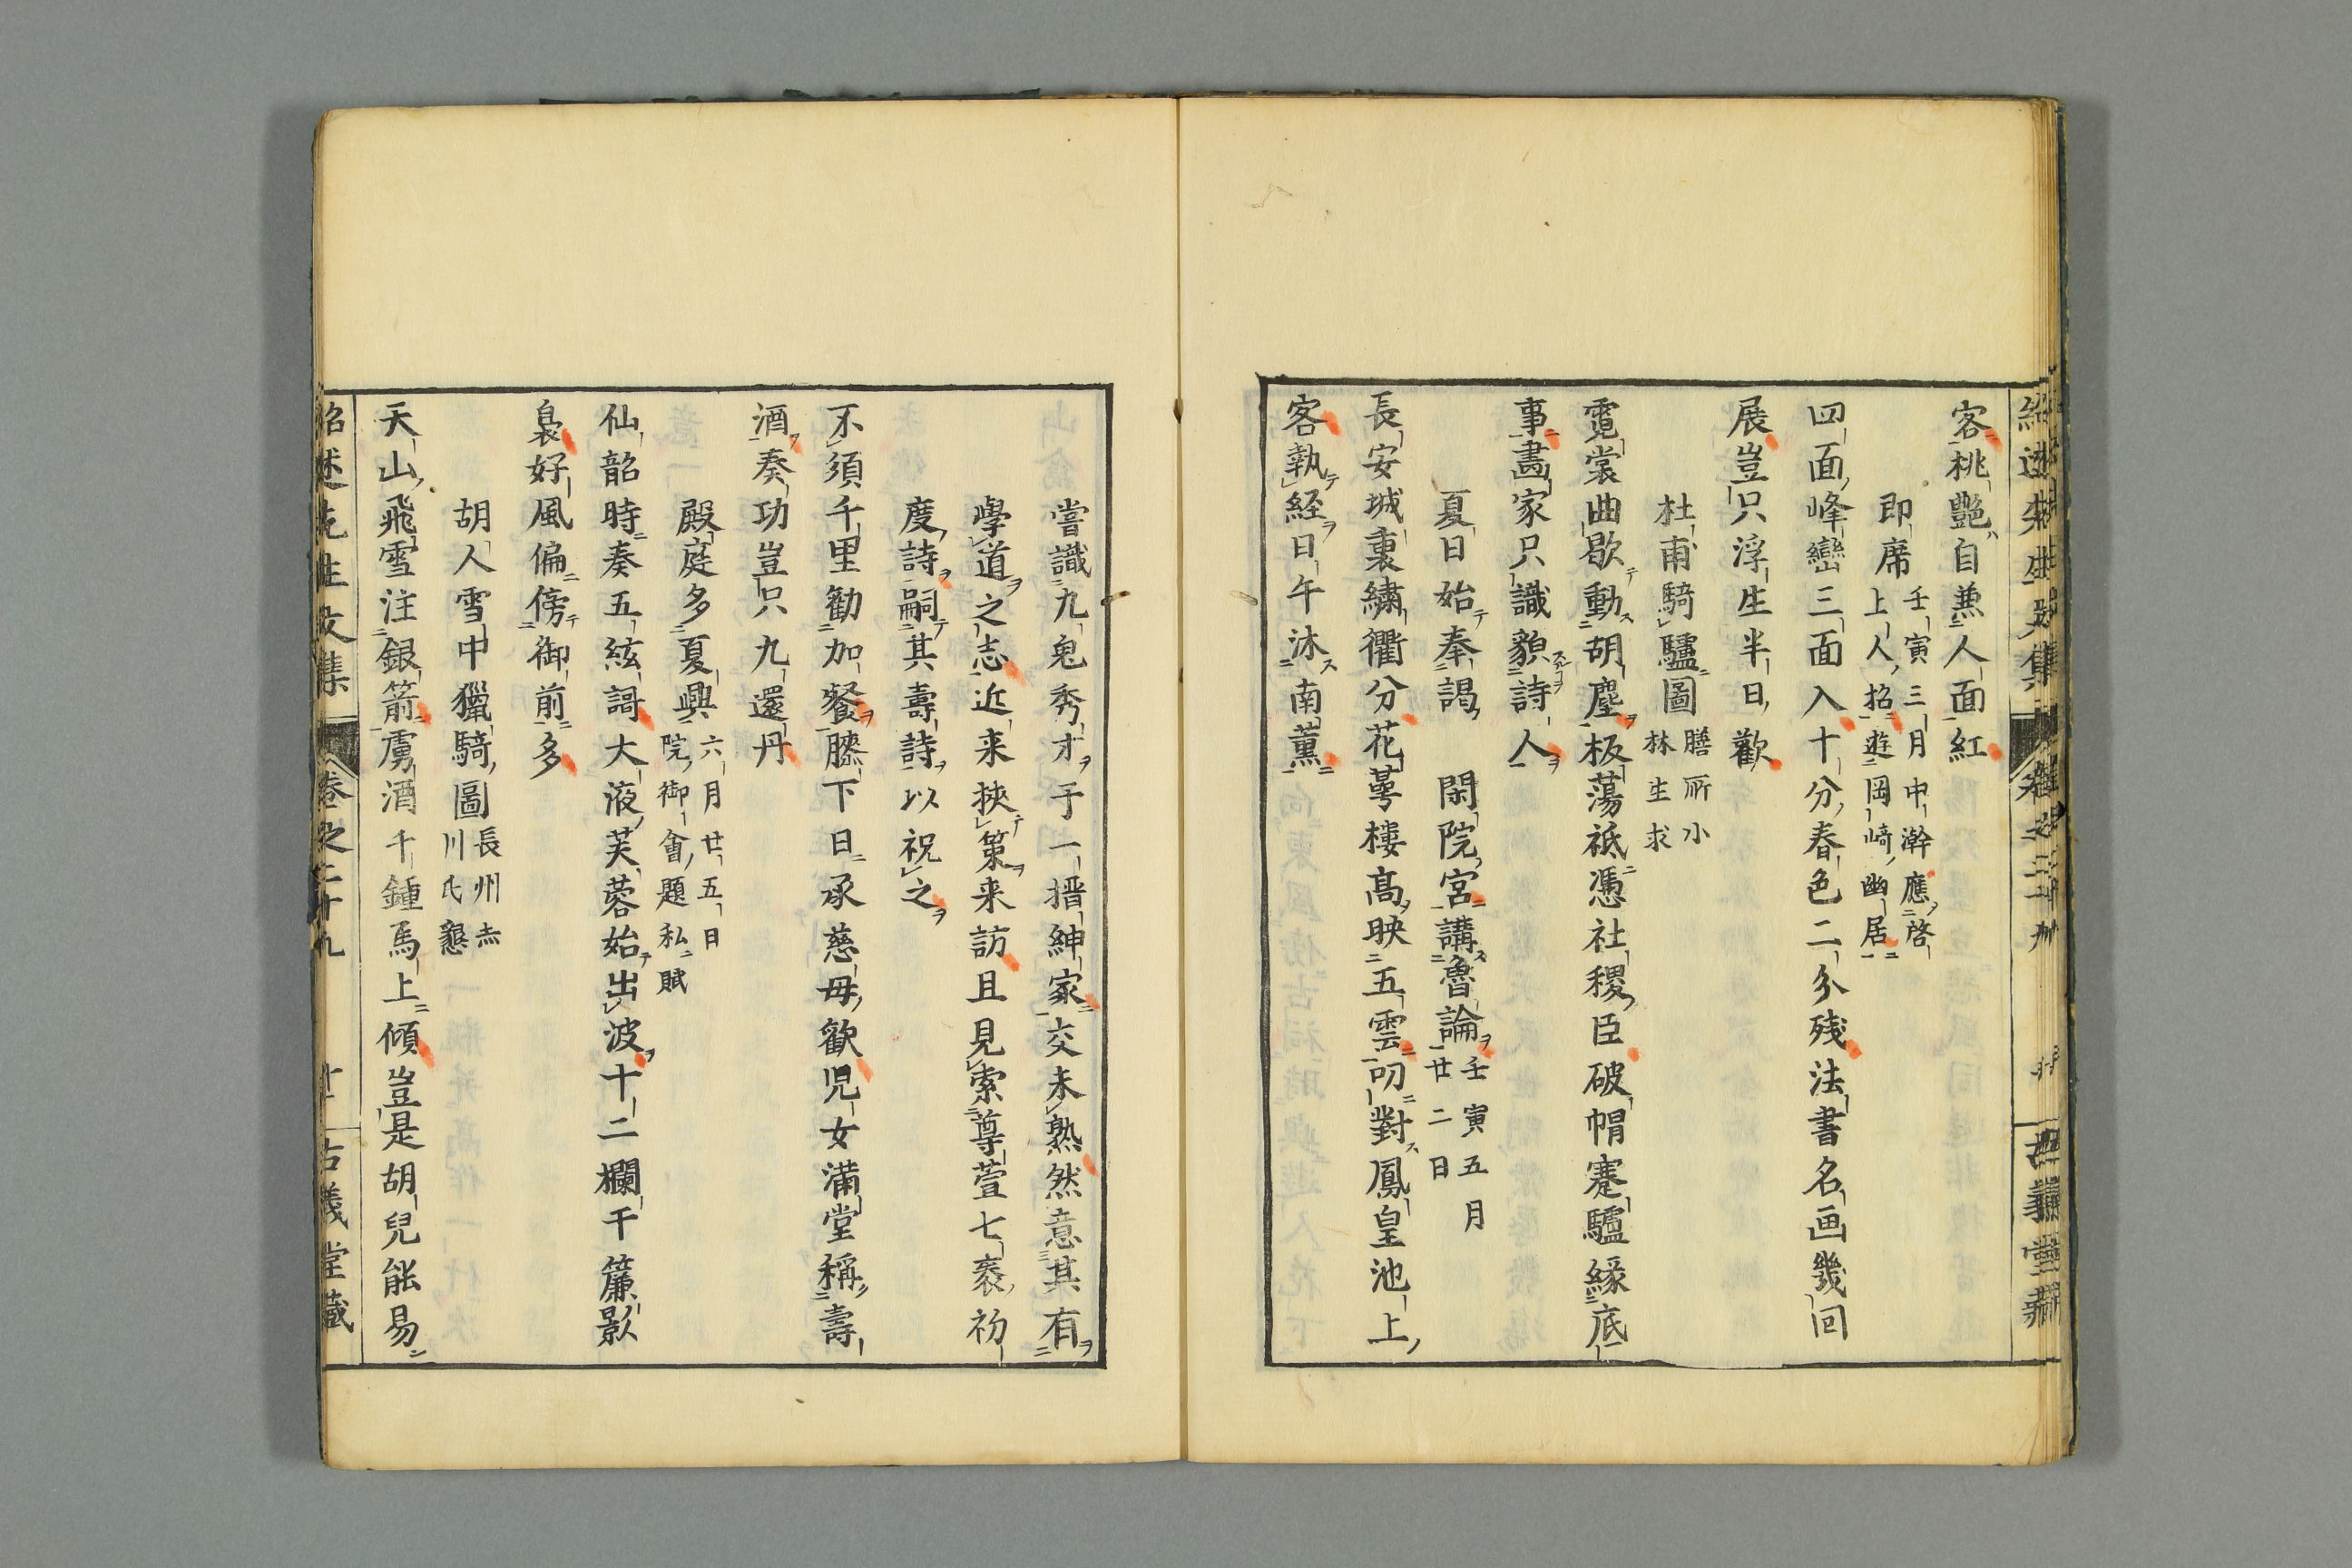 客桃艷自兼人面紅
即席
壬寅三月中澣應啓
上人招遊岡﨑幽居
四面峰巒三面入十分春色二分残法書名画幾回
展豈只浮生半日歡
杜甫騎驢圖
膳所小
林生求
霓裳曲歇動胡塵板蕩祗憑社稷臣破帽蹇驢緣底
事畵家只識貌詩人
夏日始奉謁
閑院宮講魯論
壬寅五月
廿二日
長安城裏繡衢分花萼樓高映五雲叨對鳳皇池上
客執経日午沐南薰
嘗識九鬼秀才于一搢紳家交未熟然意其有
學道之志近来挾策来訪且見索尊萱七袠初
度詩嗣其壽詩以祝之
不須千里勸加餐膝下日承慈母歡児女滿堂稱壽
酒奏功豈只九還丹
殿庭多夏興
六月廿五日
院御會題私賦
仙韶時奏五絃謌大液芙蓉始出波十二欄干簾影
裊好風偏傍御前多
胡人雪中獵騎圖
長州志
川氏懇
天山飛雪注銀箭虜酒千鍾馬上傾豈是胡兒能易
紹述先生文集
卷之二十九
十
古義堂藏